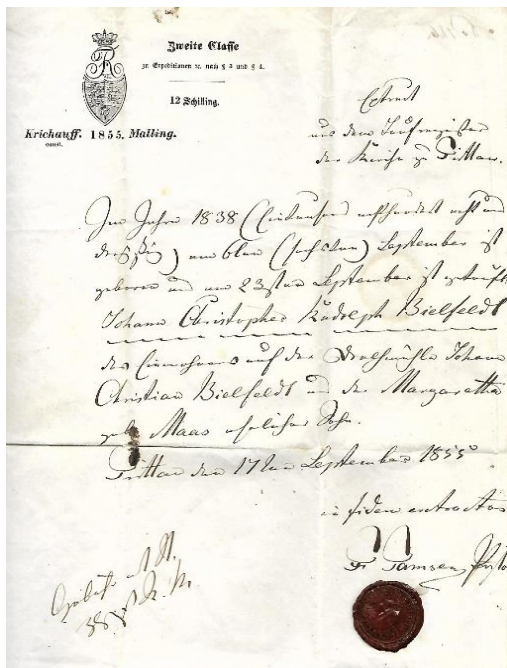 Zweite Classe
zu Expeditionen ꝛc. nach § 3 und § 4.
12 Schilling.
Krichauff. 1855. Malling.
const.
Extract
aus dem Taufregister
der Kirche zu Trittau.
Im Jahre 1838 (Eintausend achthundert acht und
dreißig) am 6ten (sechsten) September ist
geboren und am 23sten September ist getauft
Johann Christopher Rudolph Bielfeldt
des Einwohners auf der Johann
Christian Bielfeldt und der Margaretha
geb. Maas ehelicher Sohn.
Trittau den 17ten September 1855
in fidem extractus
Fr Tamsen, Pastor
Gebühr